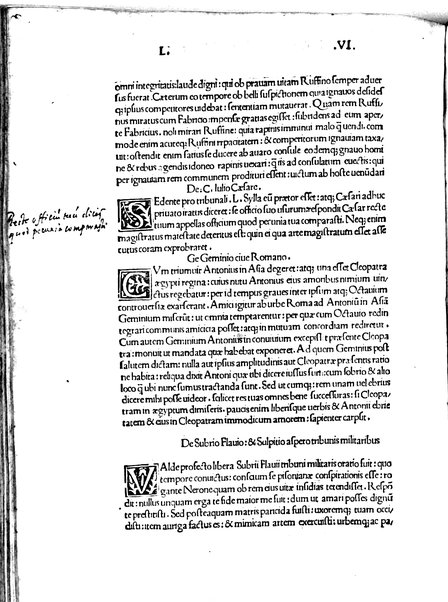 L. .VI.
omni integritatis: laude digni: qui ob prauam uitam Ruffino semper aduer
sus fuerat. Cæterum eo tempore ob belli suspictionem quia ignauos desides
q; ipsius competitores uidebat: sententiam mutauerat. Quam rem Ruffi
nus miratus cum Fabricio impense gratias egisset: subridens ad eum aper,
te Fabricius. noli mirari Ruffine: quia rapinis immunii malo q̃ uendi. com
mode enim acuteq; Ruffini rapacitatem: & competitorum ignauiam taxa/
uit: ostendit enim satius se ducere ab auaro consule eodemq; gnauo homi
ne & rebus gerendis idoneo rapinis uexari: q̃ is ad consulatum euectis: qui
per ignauiam rem communem prodituri essent: uictum ab hoste uenūdari
De. C. Iulio Cæsare.
SEdente pro tribunali. L. Sylla cū prætor esset: atq; Cæsari adhuc
priuato iratus diceret: se officio suo usurum: respondit Cæsar recte
tuum appellas officium quod pecunia tua comparasti. Neq; enim
magistratus maiestate deterritus est: quin ei qua arte magistratum esset asse
cutus coram exprobraret.
Recte officiū tuū dicis
quod pecunia comparasti
Ge Geminio ciue Romano.
CVm triumuir Antonius in Asia degeret: atq; una esset Cleopatra
ægypti regina: cuius nutu Antonius eius amoribus nimium uin/
ctus regebatur: per id tempus graues inter ipsum atq; Octauium
controuersiæ exarserant. Amici igitur ab urbe Roma ad Antoniū in Asiā
Geminium miserūt: ut omnia temptarentur: per quæ cum Octauio redin
tegrari communis amicicia posset: atq; in mutuam concordiam rediretur.
Cum autem Geminium Antonius in conuiuium excepisset præsente Cleopa
tra: monuit ut mandata quæ habebat exponeret. Ad quem Geminius post
salutem dictam: nulla aut ipsius amplitudinis aut Cleopatræ præsentis ratio
ne habita: reliqua dixit Antoni quæ tibi dicere iussus sum: cum sobrio & alio
loco q̃ ubi nunc sumus tractanda sunt. Sed ut cumq; rem unam uel ebrius
dicere mihi posse uideor. salicet res tuas omnes bene successuras: si Cleopa/
tram in ægyptum dimiseris. paucis enim liberisque uerbis & Antonii ebrie
tatem & eius in Cleopatram immodicum amorem: sapienter carpsit.
De Subrio Flauio: & Sulpitio aspero tribunis militaribus
VAlde profecto libera Subrii Flauii tribuni militaris oratio fuit: quo
tempore conuictus: consaum se pisonianæ conspirationis esse: ro
gante Nerone quam ob rem eius uitæ insidias tetendisset. Respō
dit: nullus unquam erga te fide maior me fuit: dum ut amari posses dignū
te prestitisti. Sed posteaquam matris parricida fuisti: uxoremq; tuam occi/
disti: item auriga factus es: & mimicam artem exercuisti: urbemq; ac pa/